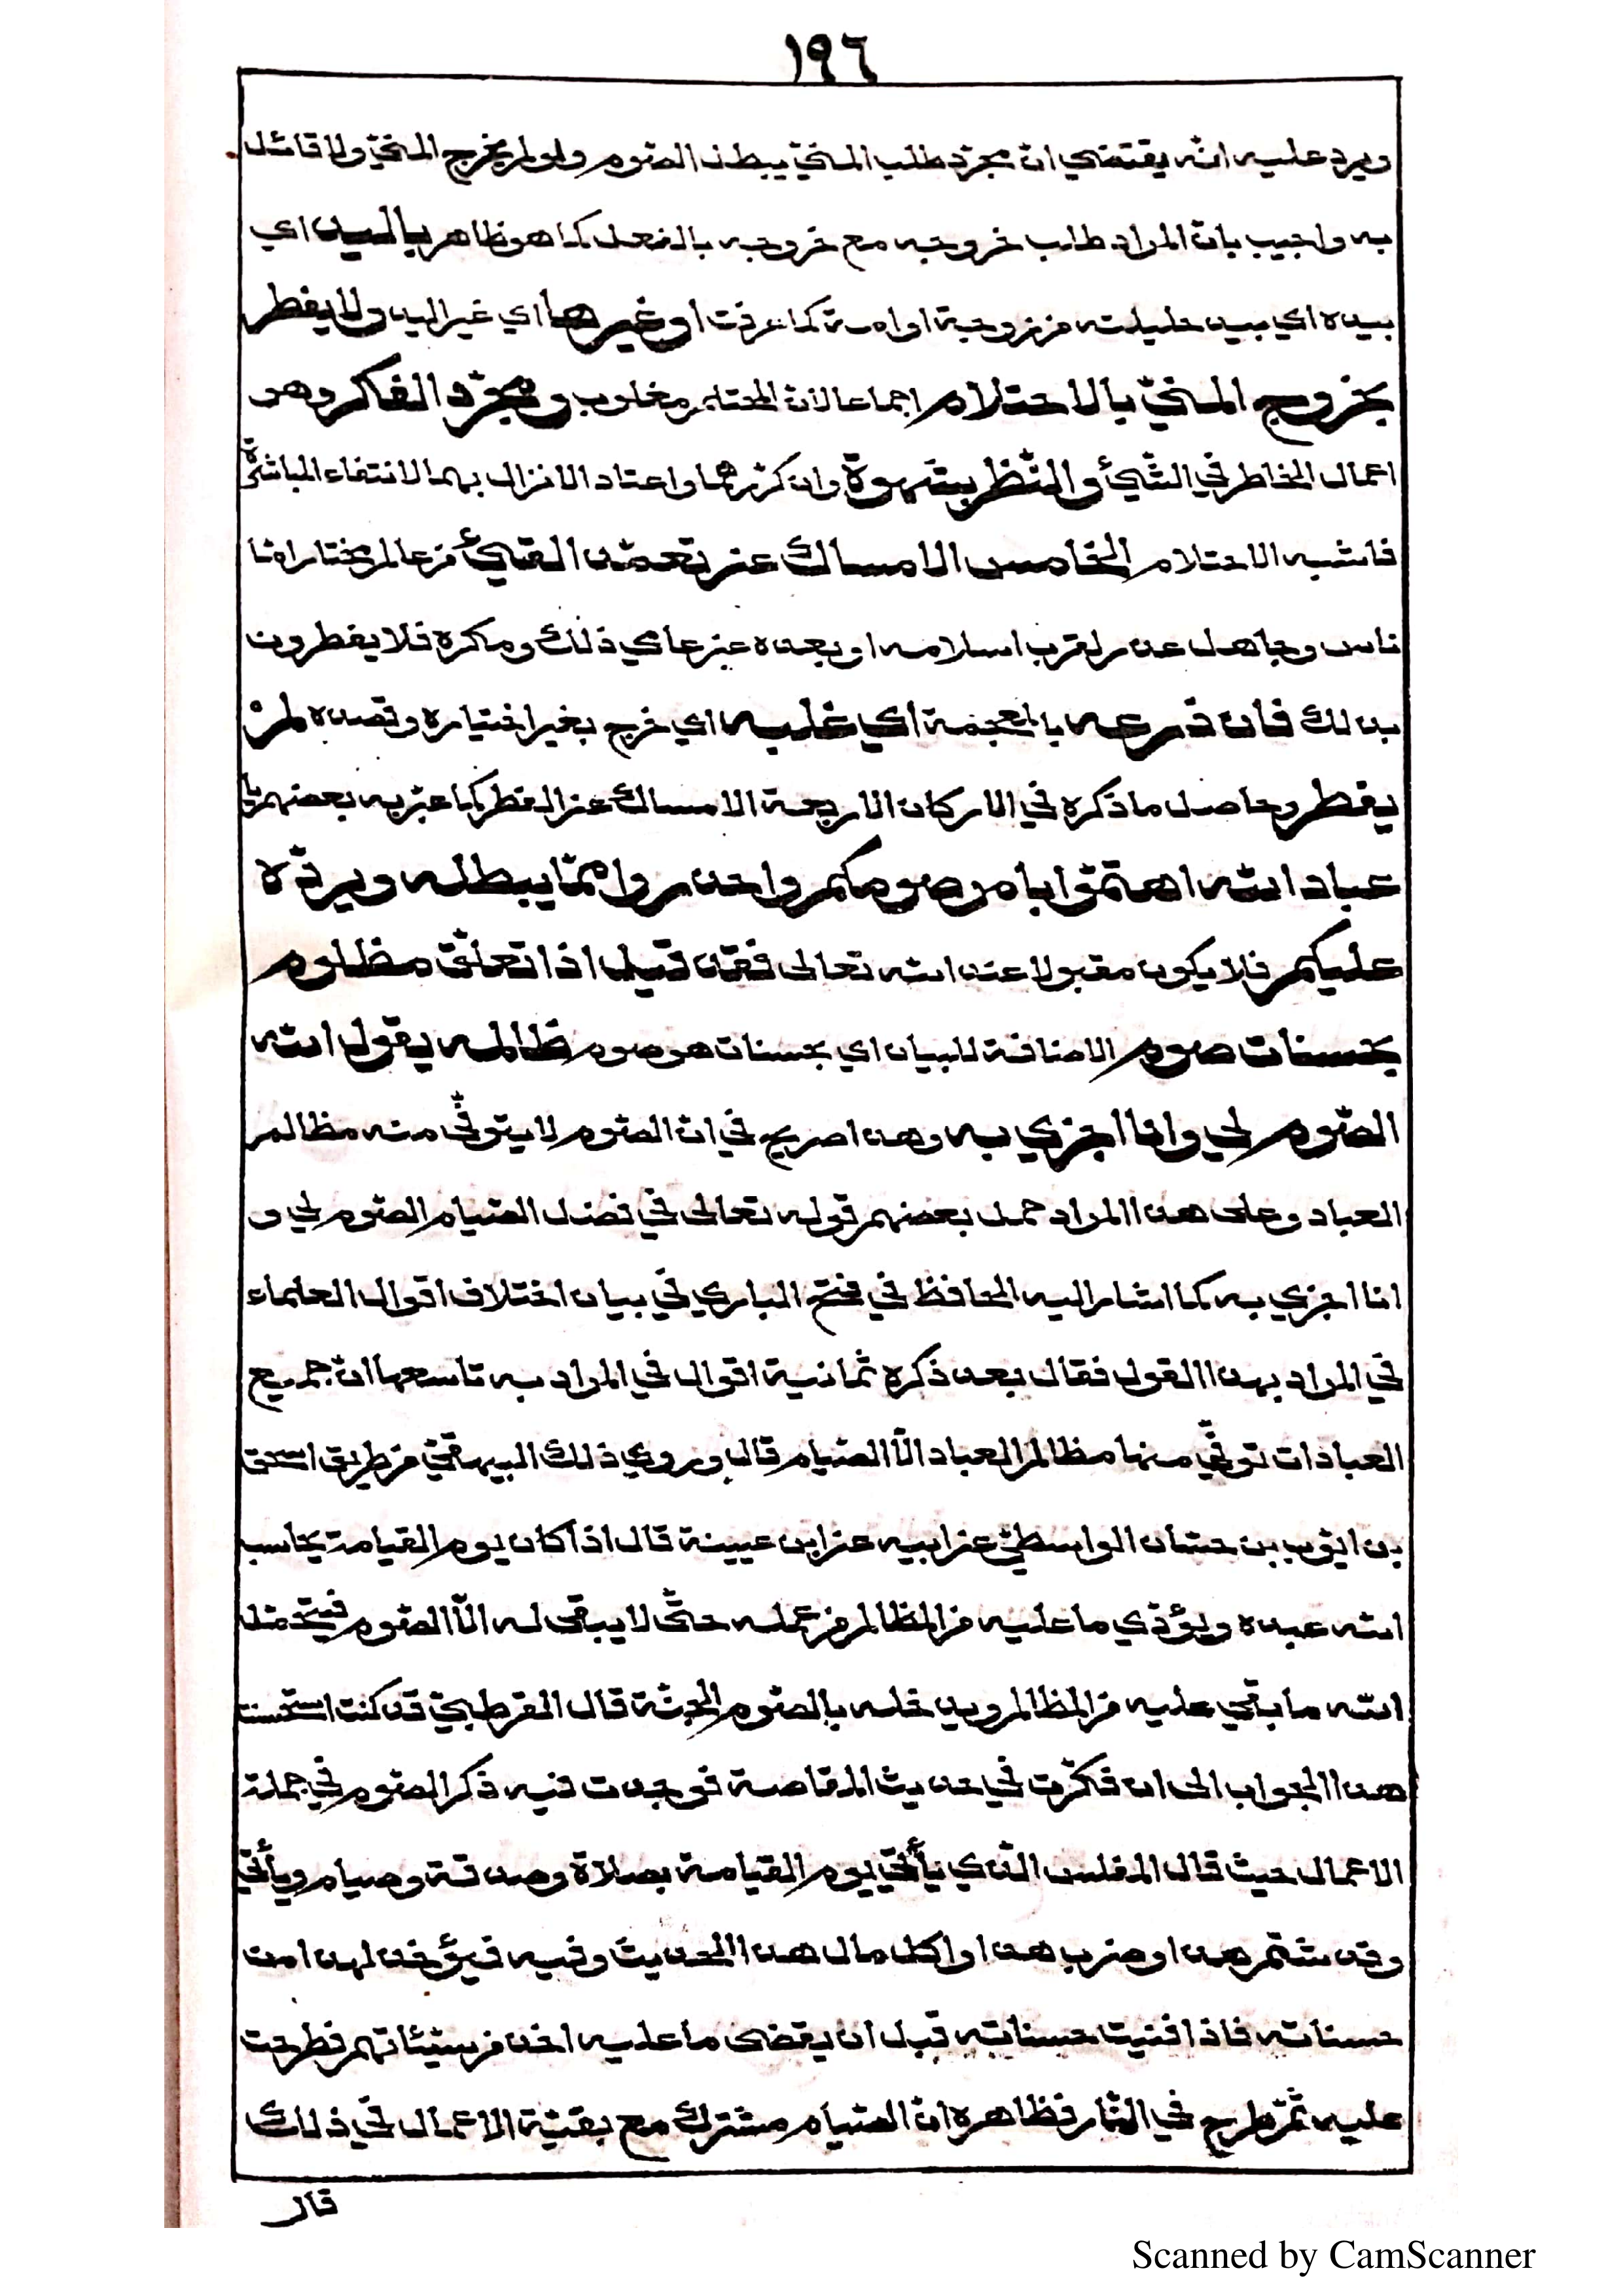 ١٩٦
ويرد عليه انّه يقتضي انّ مجرّد طلب المنيّ يبطل الصّوم ولو لم يخرج المنيّ ولا قائل
به واجيب بانّ المراد طلب خروجه مع خروجه بالفعل كما هو ظاهر باليد اي
بيده اي بيد حليلته من زوجة او امة كما عرفت او غيرها اي غير اليد ولا يفطر
بخروج المنيّ بالاحتلام اجماعا لانّ المحتلم مغلوب ومجرّد الفكر وهو
اعمال الخاطر في الشّيئ والنّظر بشهوة وان كرّرهما واعتاد الانزال بهما لانتفاء المباشرة
فاشبه الاحتلام الخامس الامساك عن تعمّد القيئ من عالم مختار امّا
ناس وجاهل عذر لقرب اسلامه او بعده عن عالمي ذلك ومكره فلا يفطرون
بذلك فان ذرعه بالمعجمة اي غلبه اي خرج بغير اختياره وقصده لمْ
يفطر وحاصل ما ذكره في الاركان الاربعة الامساك عن المفطر كما عبّر به بعضهم يا
عباد الله اهتمّوا بامر صومكم واحذروا ممّا يبطله ويردّه
عليكم فلا يكون مقبولا عند الله تعالى فقد قيل اذا تعلّق مظلوم
بحسنات صوم الاضافة للبيان اي بحسنات هو صوم ظالمه يقول الله
الصّوم لي وانا اجزي به وهذا صريح في انّ الصّوم لا يتوفّى منه مظالم
العباد وعلى هذا المراد حمل بعضهم قوله تعالى في فضل الصّيام الصّوم لي و
انا اجزي به كما اشار اليه الحافظ في فتح الباري في بيان اختلاف اقوال العلماء
في المراد بهذا القول فقال بعد ذكره ثمانية اقوال في المراد به تاسعها انّ جميع
العبادات توفّى منها مظالم العباد الّا الصّيام قال وروي ذلك البيهقيّ من طريق اسحق
بن ايّوب بن حسّان الواسطيّ عن ابيه عن ابن عيينة قال اذا كان يوم القيامة يحاسب
الله عبده ويؤدّي ما عليه من المظالم من عمله حتّى لا يبقى له الّا الصّوم فيتحمّل
الله ما بقي عليه من المظالم ويدخله بالصّوم الجنّة قال القرطبيّ قد كنت استحسنت
هذا الجواب الى ان فكّرت في حديث المقاصة فوجدت فيه ذكر الصّوم في جملة
الاعمال حيث قال المفلس الّذي يأتي يوم القيامة بصلاة وصدقة وصيام ويأتي
وقد شتم هذا وضرب هذا واكل مال هذا الحديث وفيه فيؤخذ لهذا من
حسناته فاذا فنيت حسناته قبل ان يقضى ما عليه اخذ من سيّئاتهم فطرحت
عليه ثمّ طرح في النّار فظاهره انّ الصّيام مشترك مع بقيّة الاعمال في ذلك
قال
Scanned by CamScanner